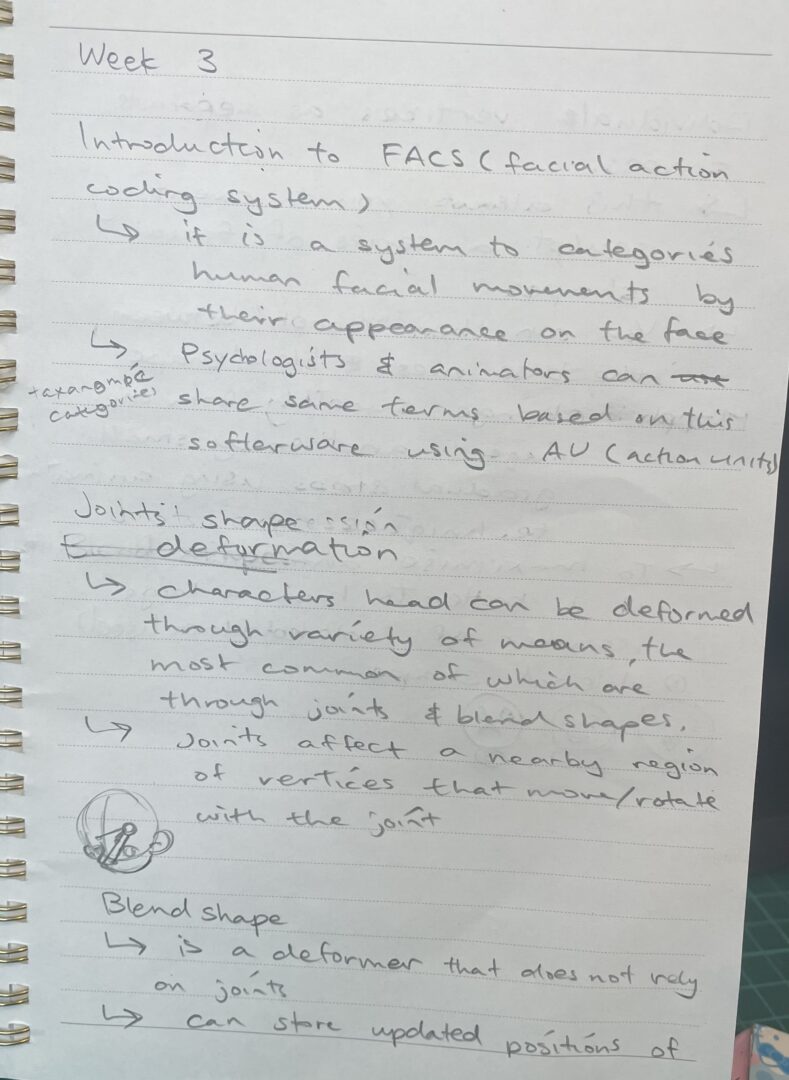 Week 3
Introduction to FACS (facial action
coding system)
↳ it is a system to categories
human facial movements by
their appearance on the face
↳ Psychologists & animators can
taxangmic
categories
share same terms based on this
softerware using AU (action units)
Joints' shape ssion
deformation
↳ characters head can be deformed
through variety of means, the
most common of which are
through joints & blend shapes.
↳ Joints affect a nearby region
of vertices that move/rotate
with the joint
Blend shape
↳ is a deformer that does not rely
on joints
↳ can store updated positions of